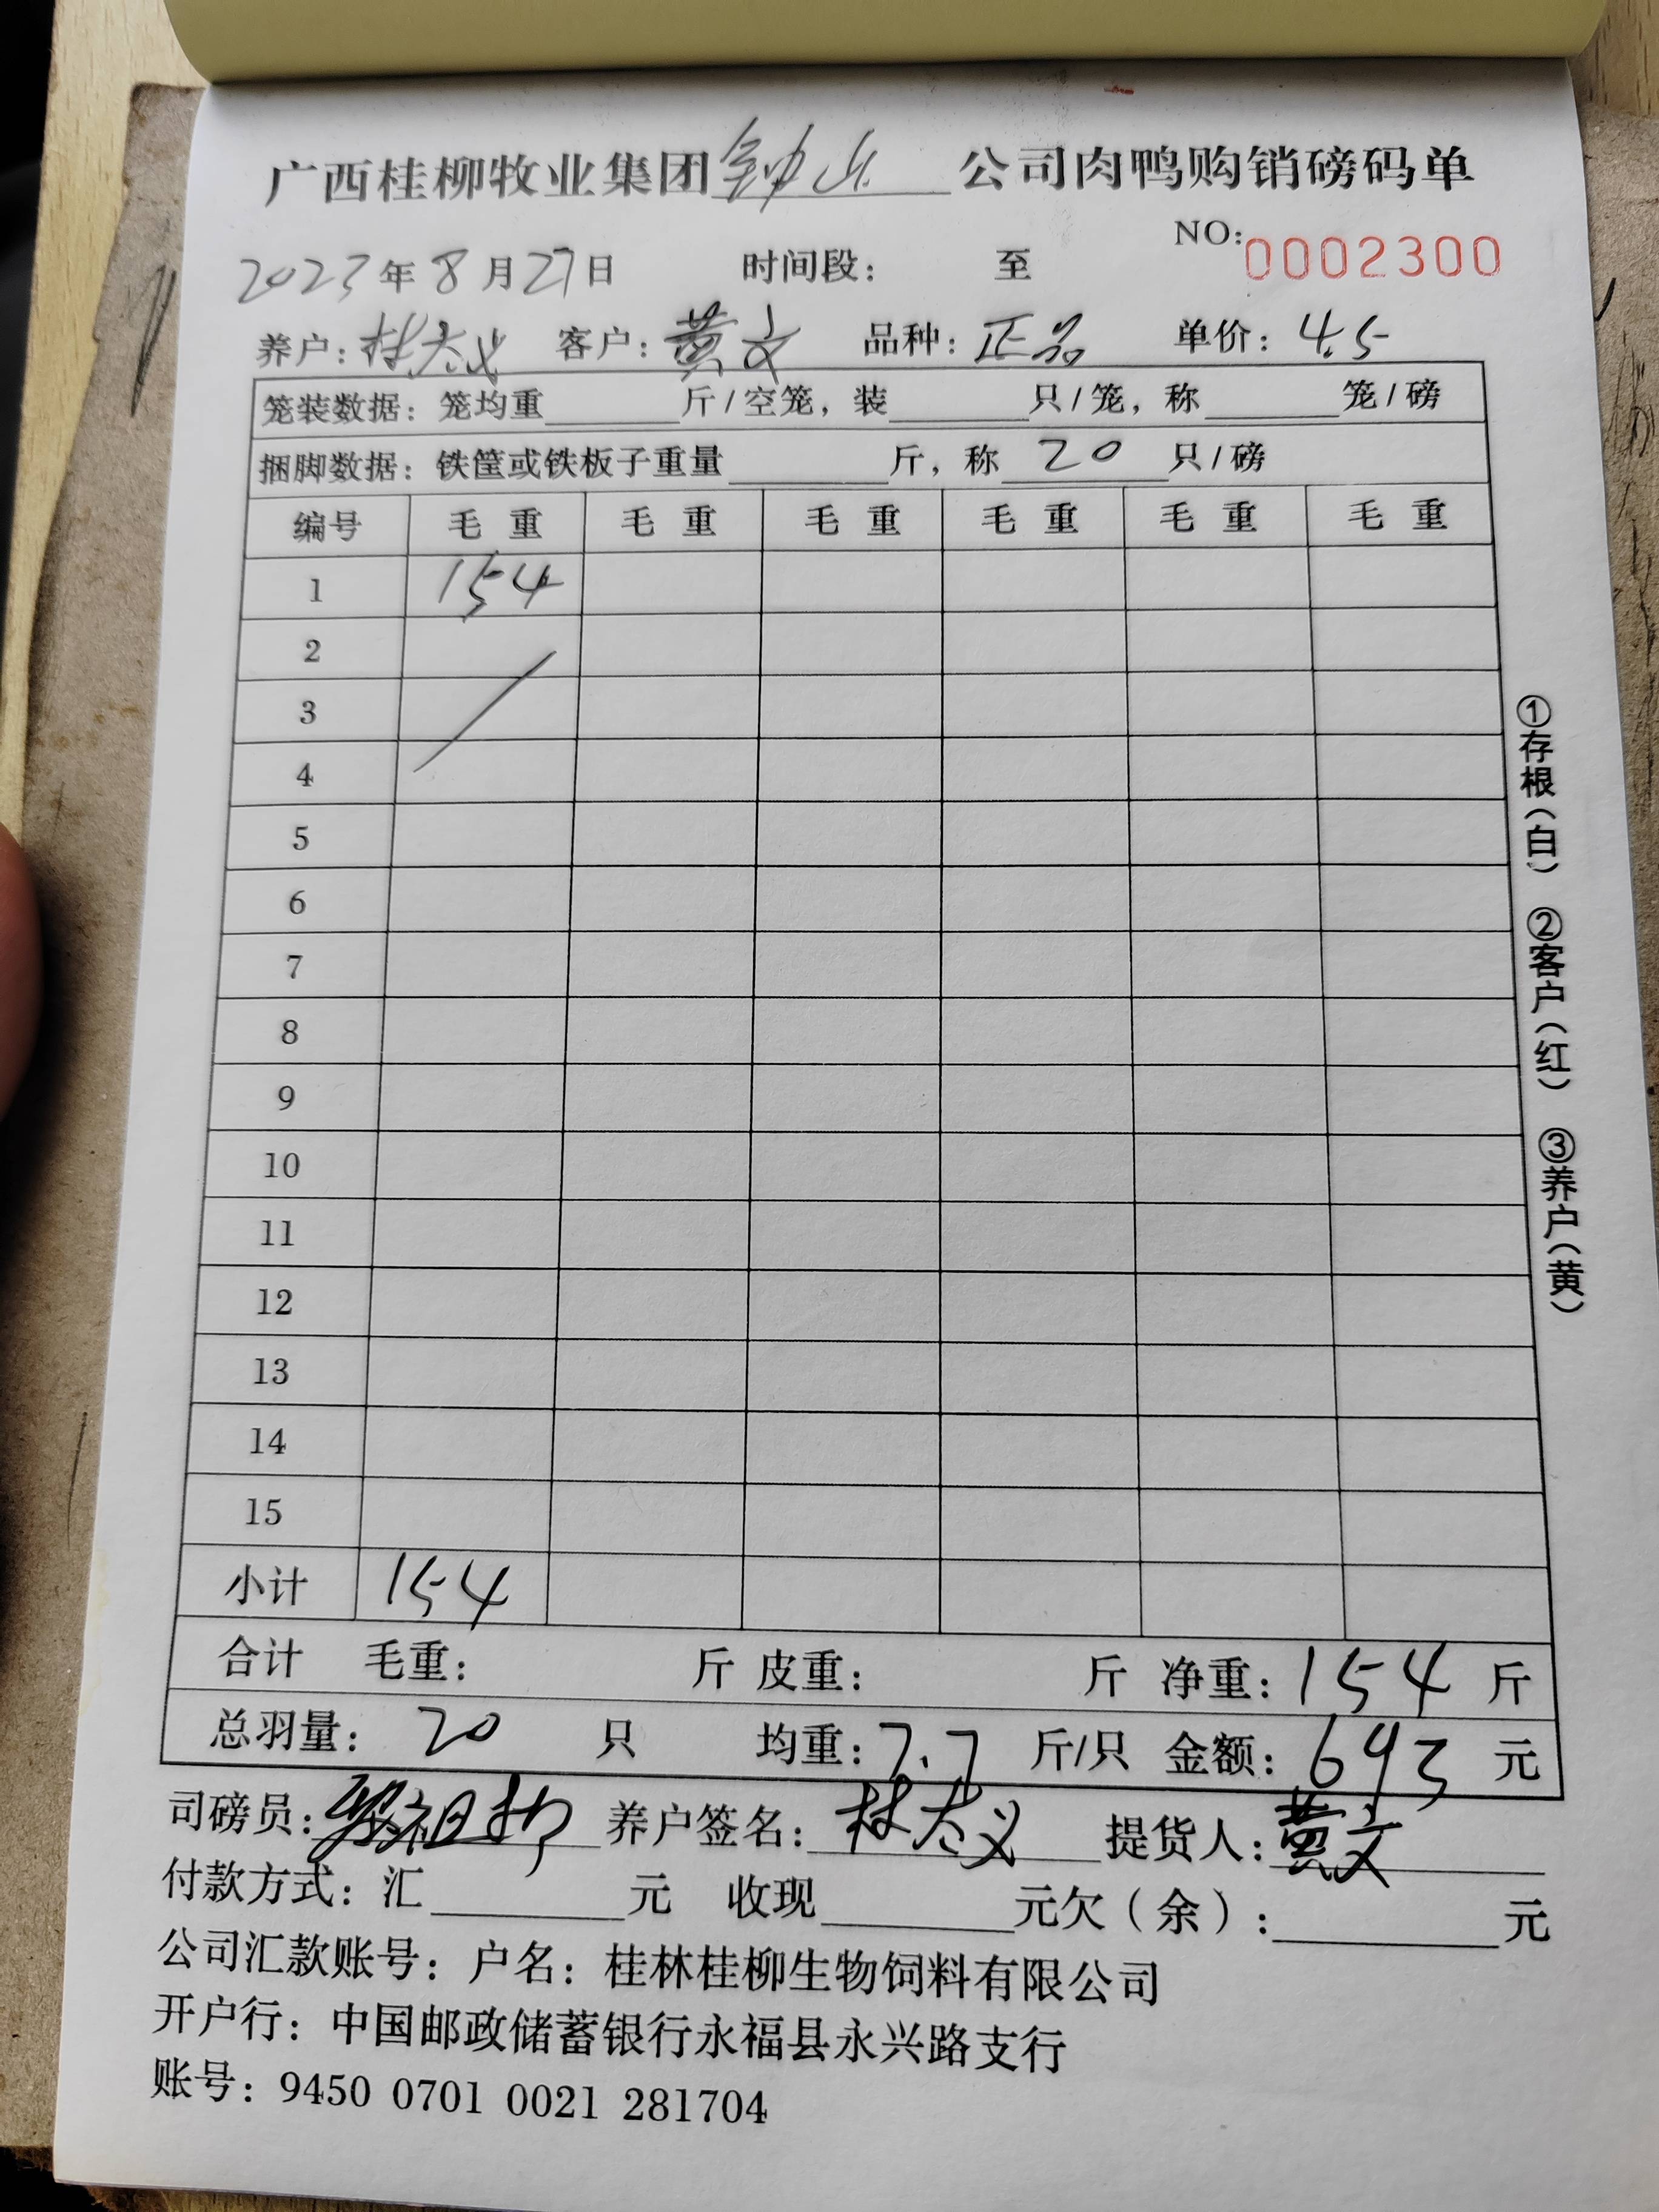 广西桂柳牧业集团钟山公司肉鸭购销磅码单
NO:0002300
2023年8月27日 时间段: 至
养户:林太义 客户:黄文 品种:正品 单价:4.5
笼装数据:笼均重 斤/空笼,装 只/笼,称 笼/磅
捆脚数据:铁筐或铁板子重量 斤,称 20 只/磅
编号 毛重 毛重 毛重 毛重 毛重 毛重
1 154
2
3
4
5
6
7
8
9
10
11
12
13
14
15
小计 154
合计 毛重: 斤 皮重: 斤 净重:154 斤
总羽量:20 只 均重:7.7 斤/只 金额:693 元
司磅员: 养户签名:林太义 提货人:黄文
付款方式:汇 元 收现 元欠(余): 元
公司汇款账号:户名:桂林桂柳生物饲料有限公司
开户行:中国邮政储蓄银行永福县永兴路支行
账号:9450 0701 0021 281704
①存根(白) ②客户(红) ③养户(黄)